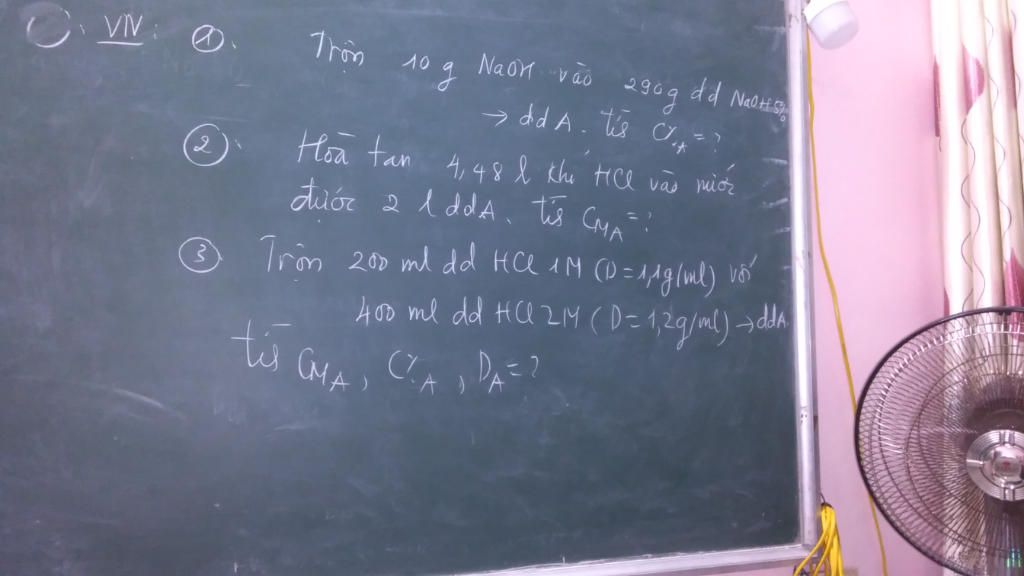 VIV: ① Trộn 10g NaOH vào 290g dd NaOH 5%
→ ddA. tís C%A = ?
② Hoà tan 4,48 l khí HCl vào nước
được 2 l ddA. tís CMA = ?
③ Trộn 200 ml dd HCl 1M (D=1,1g/ml) với
400 ml dd HCl 2M (D=1,2g/ml) → ddA
tís CMA, C%A, DA = ?